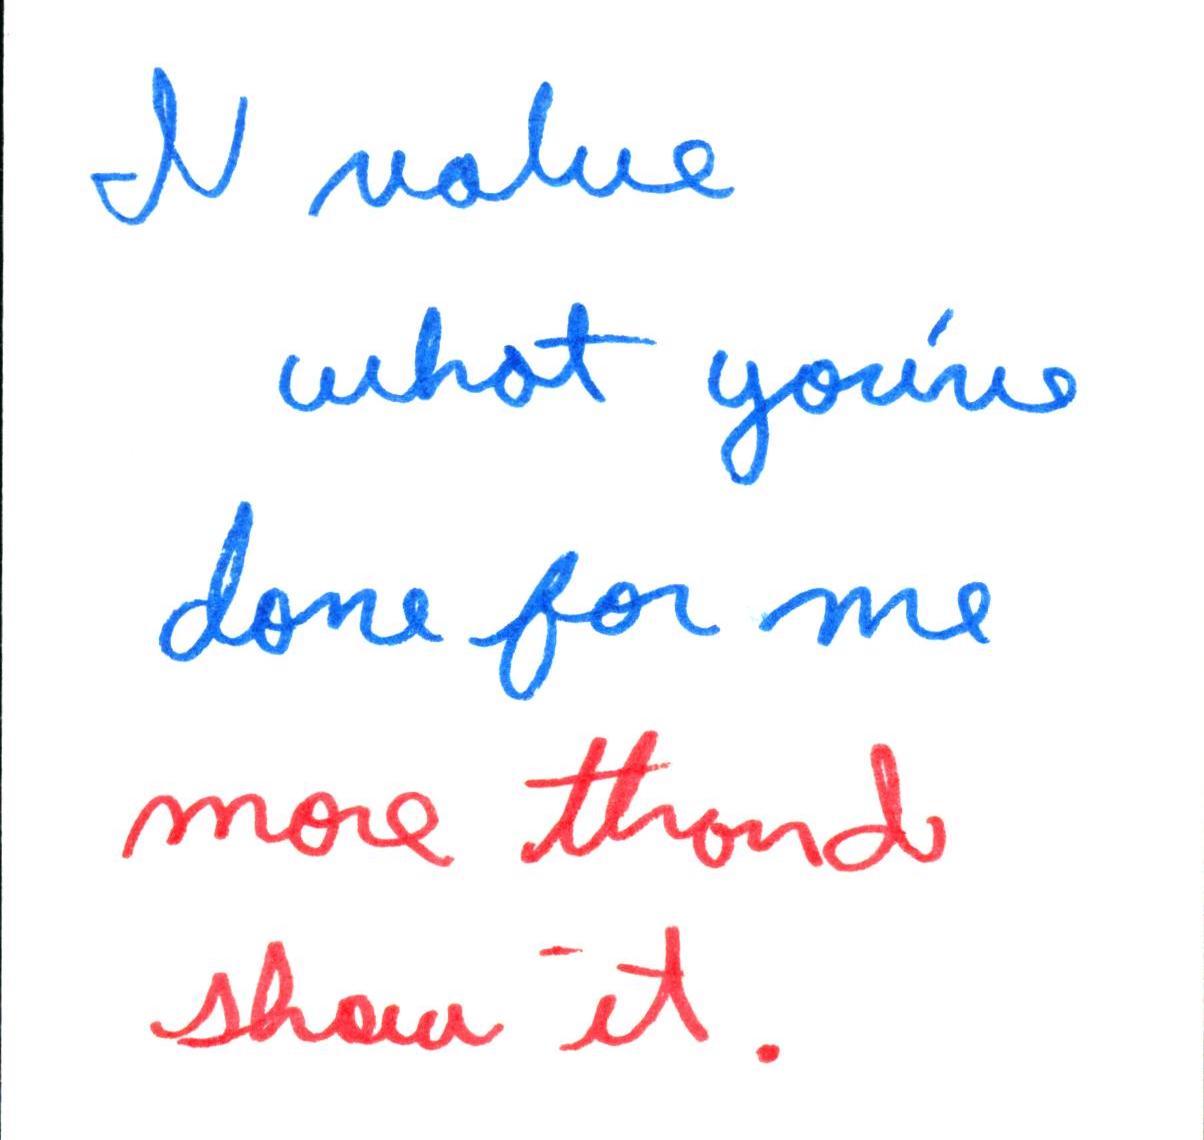 I value
what you've
done for me
more than I
show it.